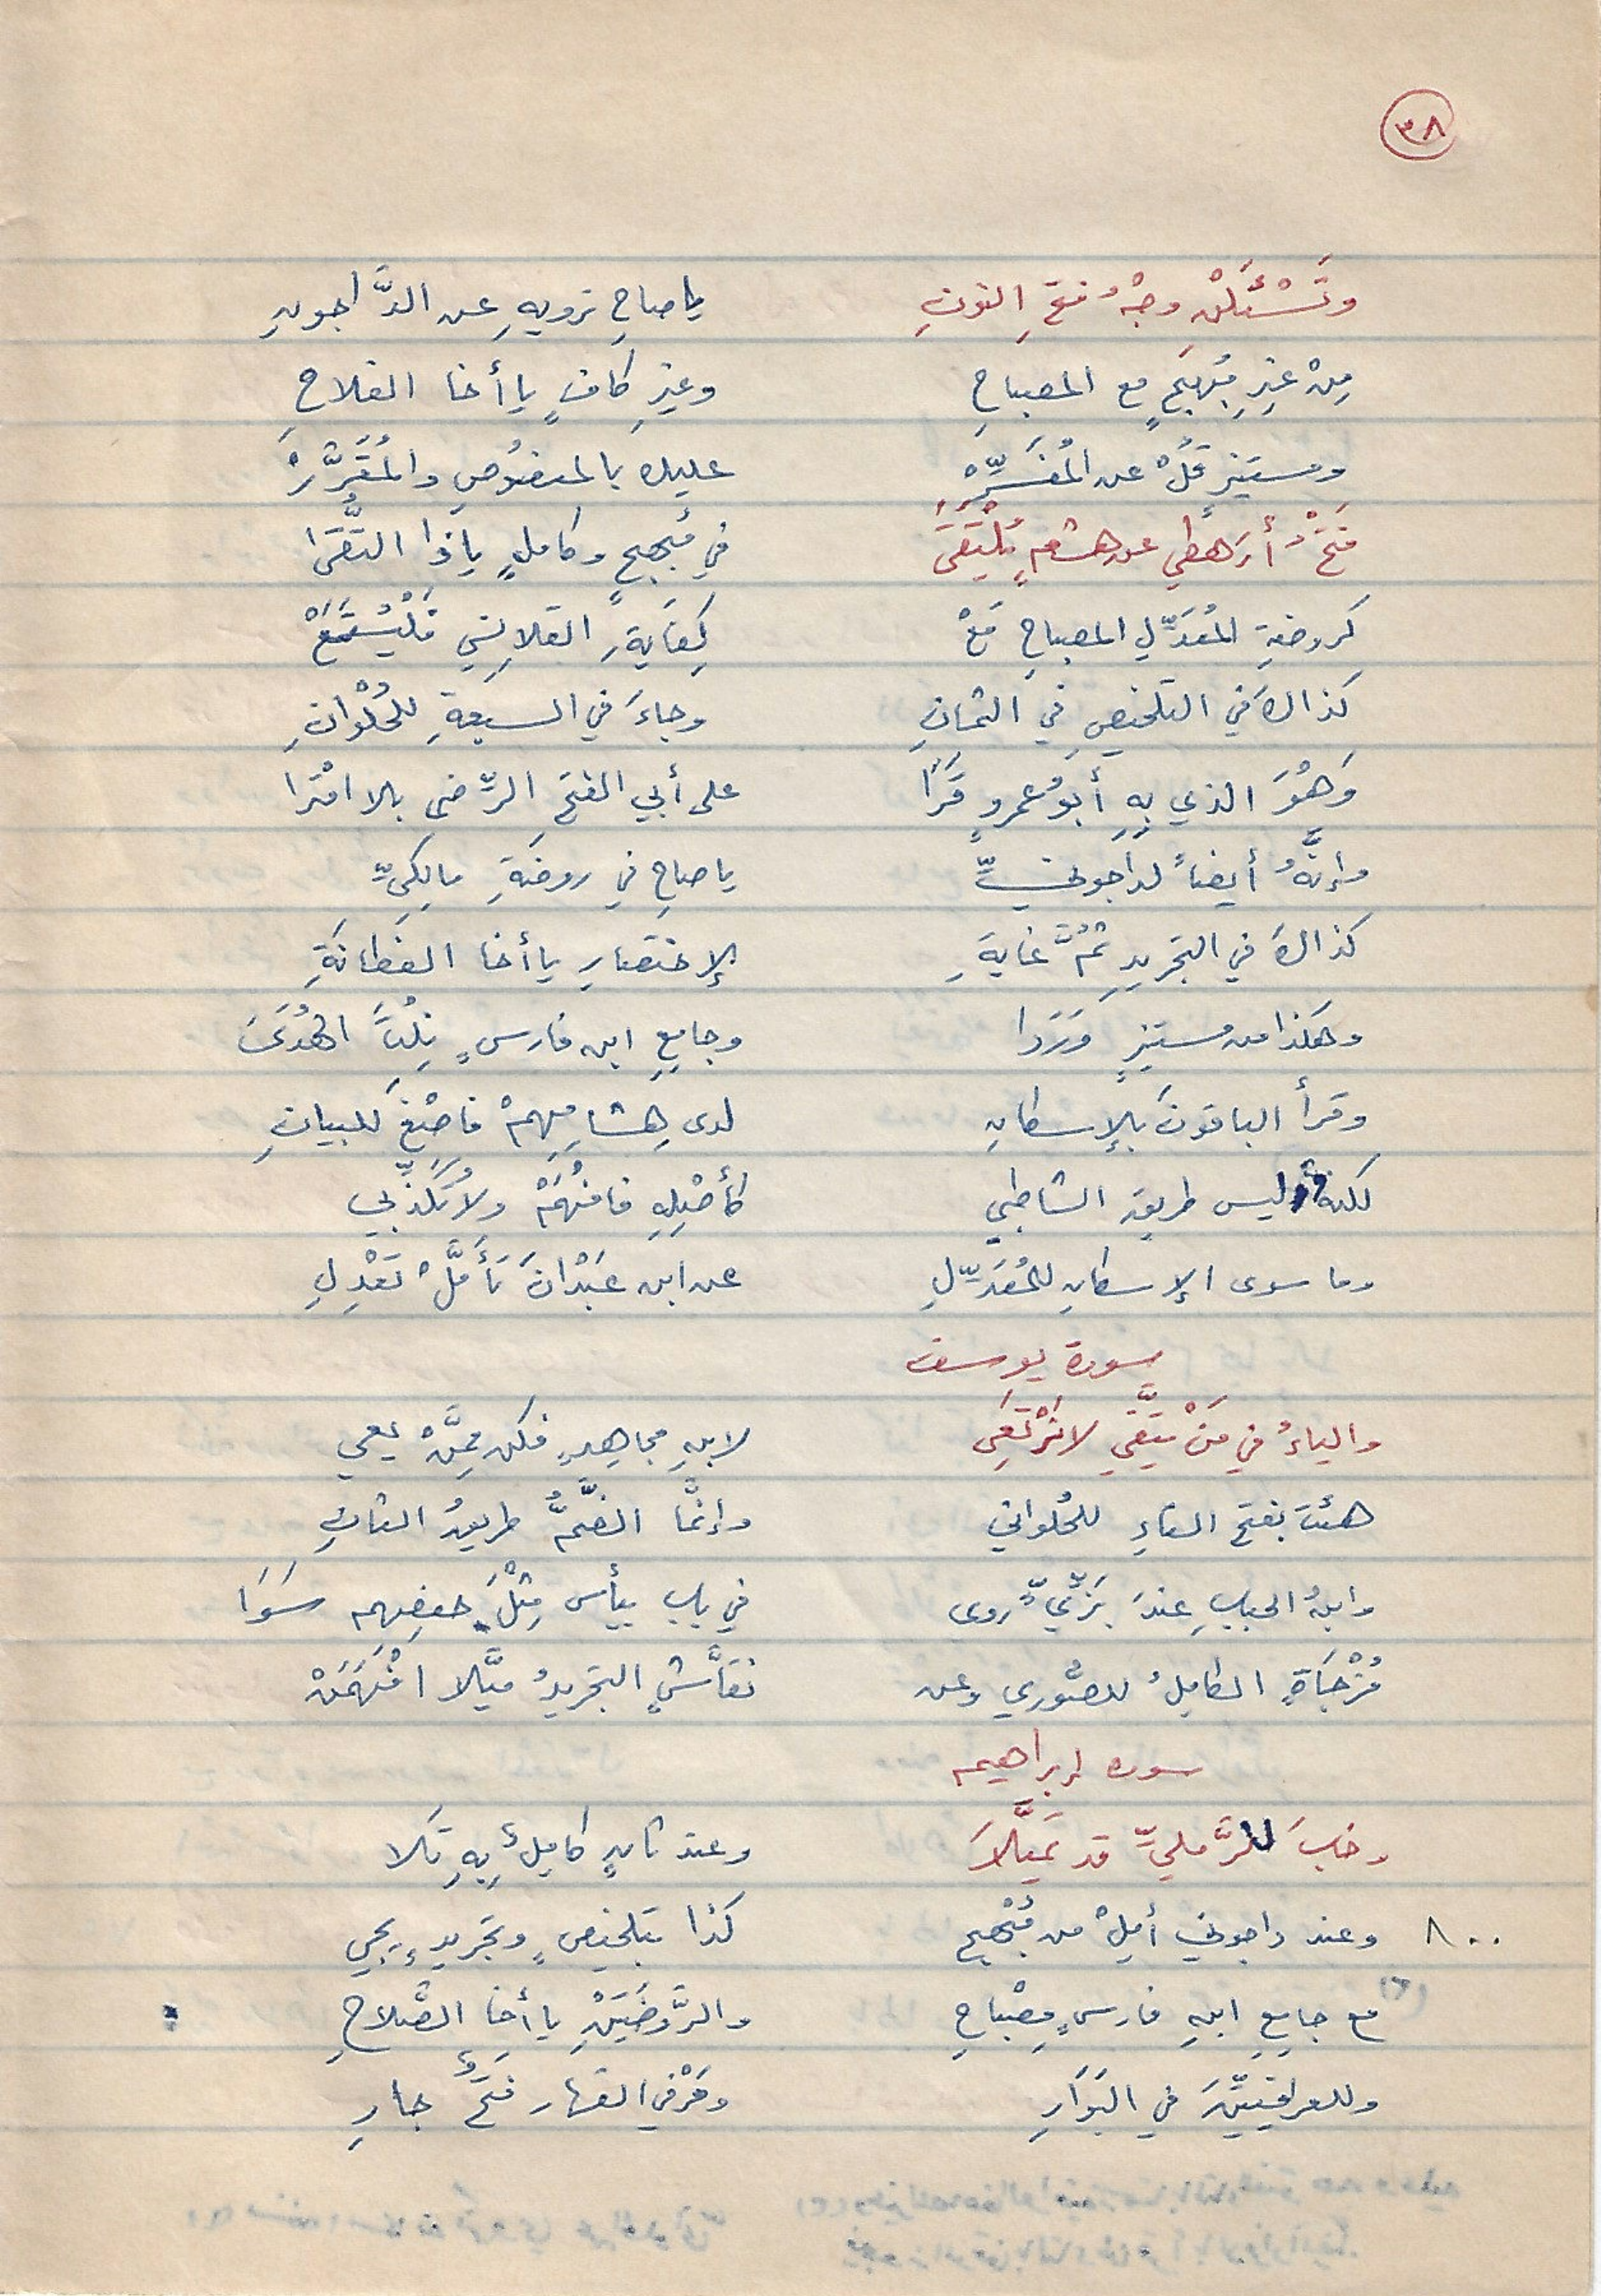 ٣٨
وَتَسْئَلَنْ وجْهُ فتحِ النونِ يا صاحِ نرويهِ عن الدَّاجونِ
مِنْ غيرِ مُبهجٍ مع المصباحِ وغيرِ كافٍ يا أخا الفلاحِ
ومستنيرٍ قُلْ عن المُفَسِّرْ عليك بالمنصُوصِ والمُقَرَّرْ
فَتْحُ أرَهطي عن هشامٍ يُلْتَقَى في مُبهجٍ وكاملٍ يا ذا التُّقَى
كروضةِ المُعَدِّلِ المصباحِ مَعْ كِفَايَةِ القلانِسِي فَلْيُسْتَمَعْ
كذاكَ في التلخيصِ في الثمانِ وجاءَ في السبعةِ للحُلْوانِ
وَهْوَ الذي بِهِ أَبُو عمرٍو قَرَا على أبي الفتحِ الرِّضى بلا امْتَرا
وإنَّهُ أيضاً لداجونيِّ يا صاحِ في روضَةِ مالِكِيِّ
كذاكَ في التجريدِ ثُمَّ غايَةِ الإختصارِ يا أخا الفَطانَةِ
وهكذا من مستنيرٍ وَرَدا وجامِعِ ابن فارسٍ نِلْتَ الهُدَى
وقرأ الباقونَ بالإسكانِ لدى هِشامِهِمْ فاصْغَ للبيانِ
لكنه ليس طريق الشاطبي كأصْلِهِ فافْهَمْ ولا تُكَذِّبي
وما سوى الإسكانِ للمُعَدِّلِ عن ابن عَبْدَانَ تَأَمَّلْ تَعْدِلِ
سورة يوسف
والياءُ في مَنْ يَتَّقي لا نَرْتَعِي لابنِ مجاهِدٍ فكن مِمَّنْ يعي
هئتَ بفتحِ التاءِ للحُلواني وإنما الضَّمُّ طريقُ الثانِ
وابنُ الحبابِ عِندَ بَزِّيٍّ روى في باب ييأس مِثْلَ حفصِهم سَوَا
مُزْجَاةٍ الكاملُ للصُّوري وعن نقاشٍ التجريدُ مَيَّلا افْهَمَنْ
سورة إبراهيم
وخابَ للرَّمليِّ قد تَمَيَّلا وعند ثانٍ كامِلٌ بِهِ تَلا
٨٠٠ وعند داجوني أمِلْ من مُبْهجِ كذا بتلخيصٍ وتجريدٍ يجي
مع جامِعِ ابنِ فارسٍ مِصْباحِ والرَّوضَتَيْنِ يا أخا الصَّلاحِ
(٢)
وللعراقِيِّينَ في البَوَارِ وعَنْ في القهار فتحٌ جارِ